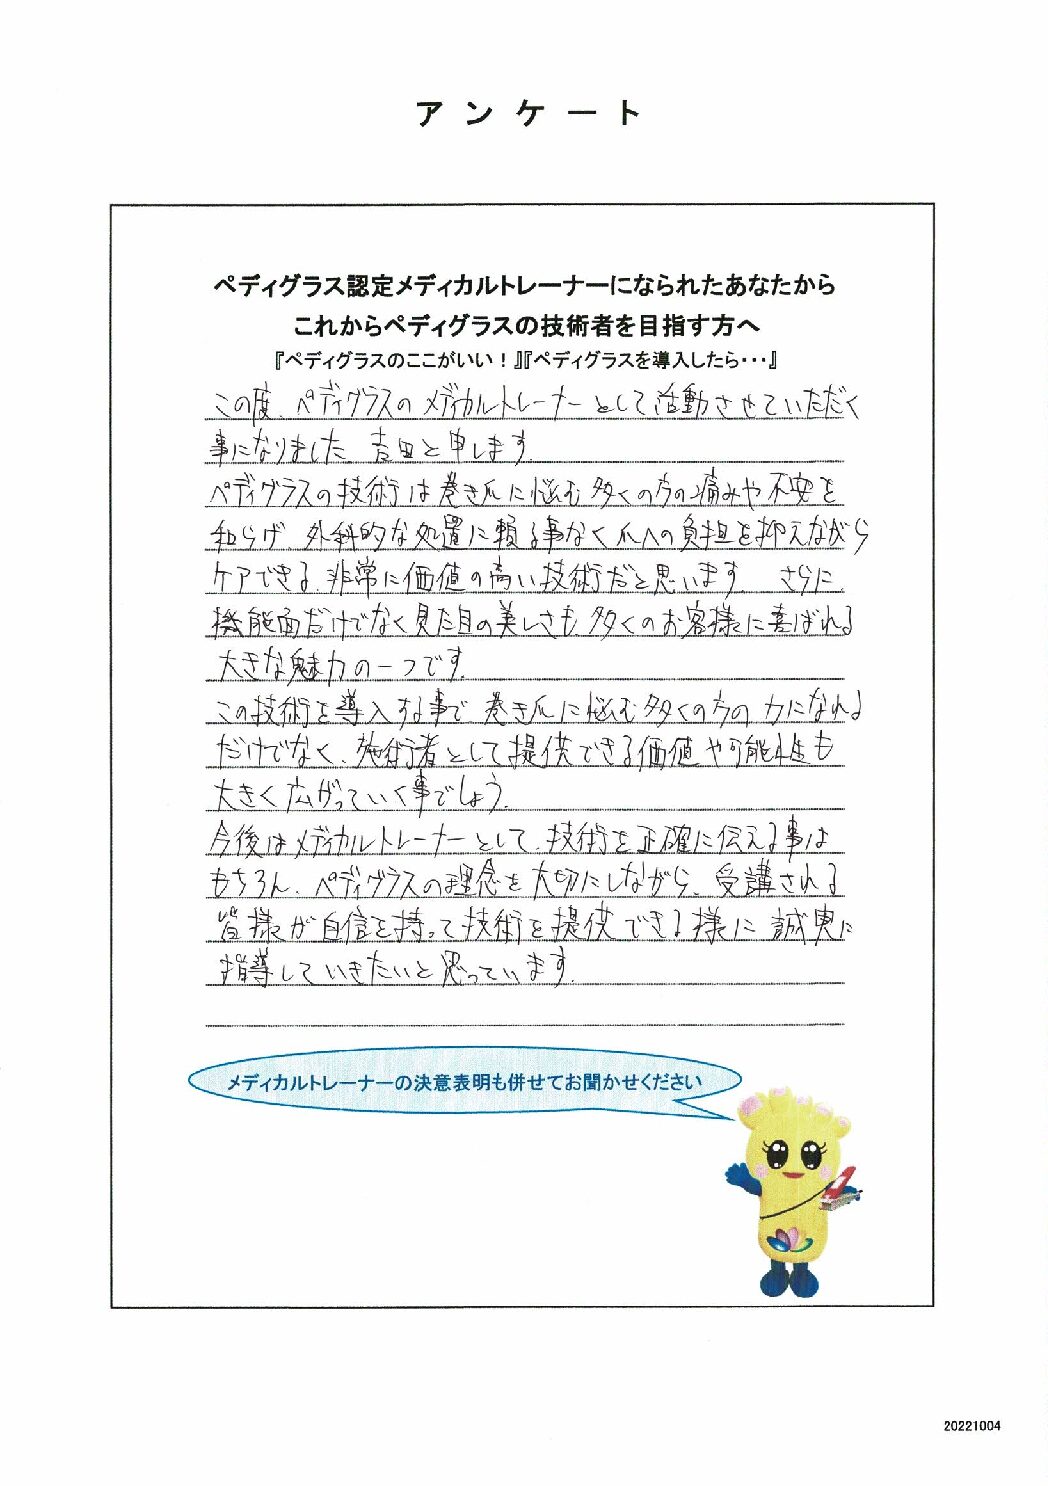 アンケート
ペディグラス認定メディカルトレーナーになられたあなたから
これからペディグラスの技術者を目指す方へ
『ペディグラスのここがいい！』『ペディグラスを導入したら・・・』
この度、ペディグラスのメディカルトレーナーとして活動させていただく
事になりました 吉田と申します
ペディグラスの技術は巻き爪に悩む多くの方の痛みや不安を
和らげ、外科的な処置に頼る事なく爪への負担を抑えながら
ケアできる、非常に価値の高い技術だと思います さらに、
機能面だけでなく見た目の美しさも多くのお客様に喜ばれる
大きな魅力の一つです。
この技術を導入する事で 巻き爪に悩む多くの方の力になれる
だけでなく、施術者として提供できる価値や可能性も
大きく広がっていく事でしょう。
今後はメディカルトレーナーとして、技術を正確に伝える事は
もちろん、ペディグラスの理念を大切にしながら、受講される
皆様が自信を持って技術を提供できる様に誠実に
指導していきたいと思っています。
メディカルトレーナーの決意表明も併せてお聞かせください
20221004